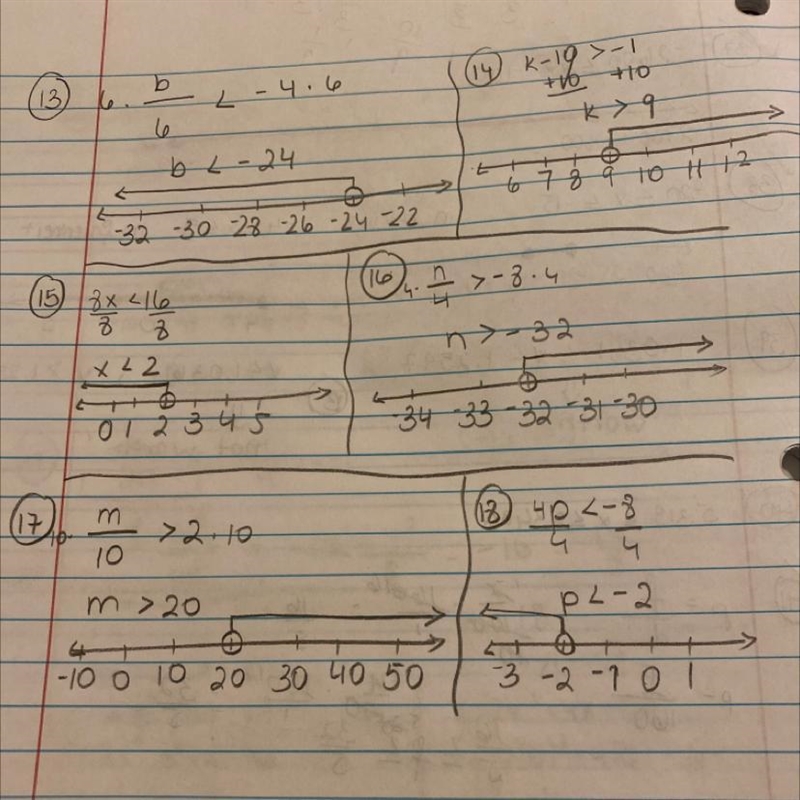 13 6 · b/6 < -4 · 6
b < -24
-32 -30 -28 -26 -24 -22
14 k-10 > -1
+10 +10
k > 9
6 7 8 9 10 11 12
15 8x/8 < 16/8
x < 2
0 1 2 3 4 5
16 4 · n/4 > -8 · 4
n > -32
-34 -33 -32 -31 -30
17 10 · m/10 > 2 · 10
m > 20
-10 0 10 20 30 40 50
18 4p/4 < -8/4
p < -2
-3 -2 -1 0 1